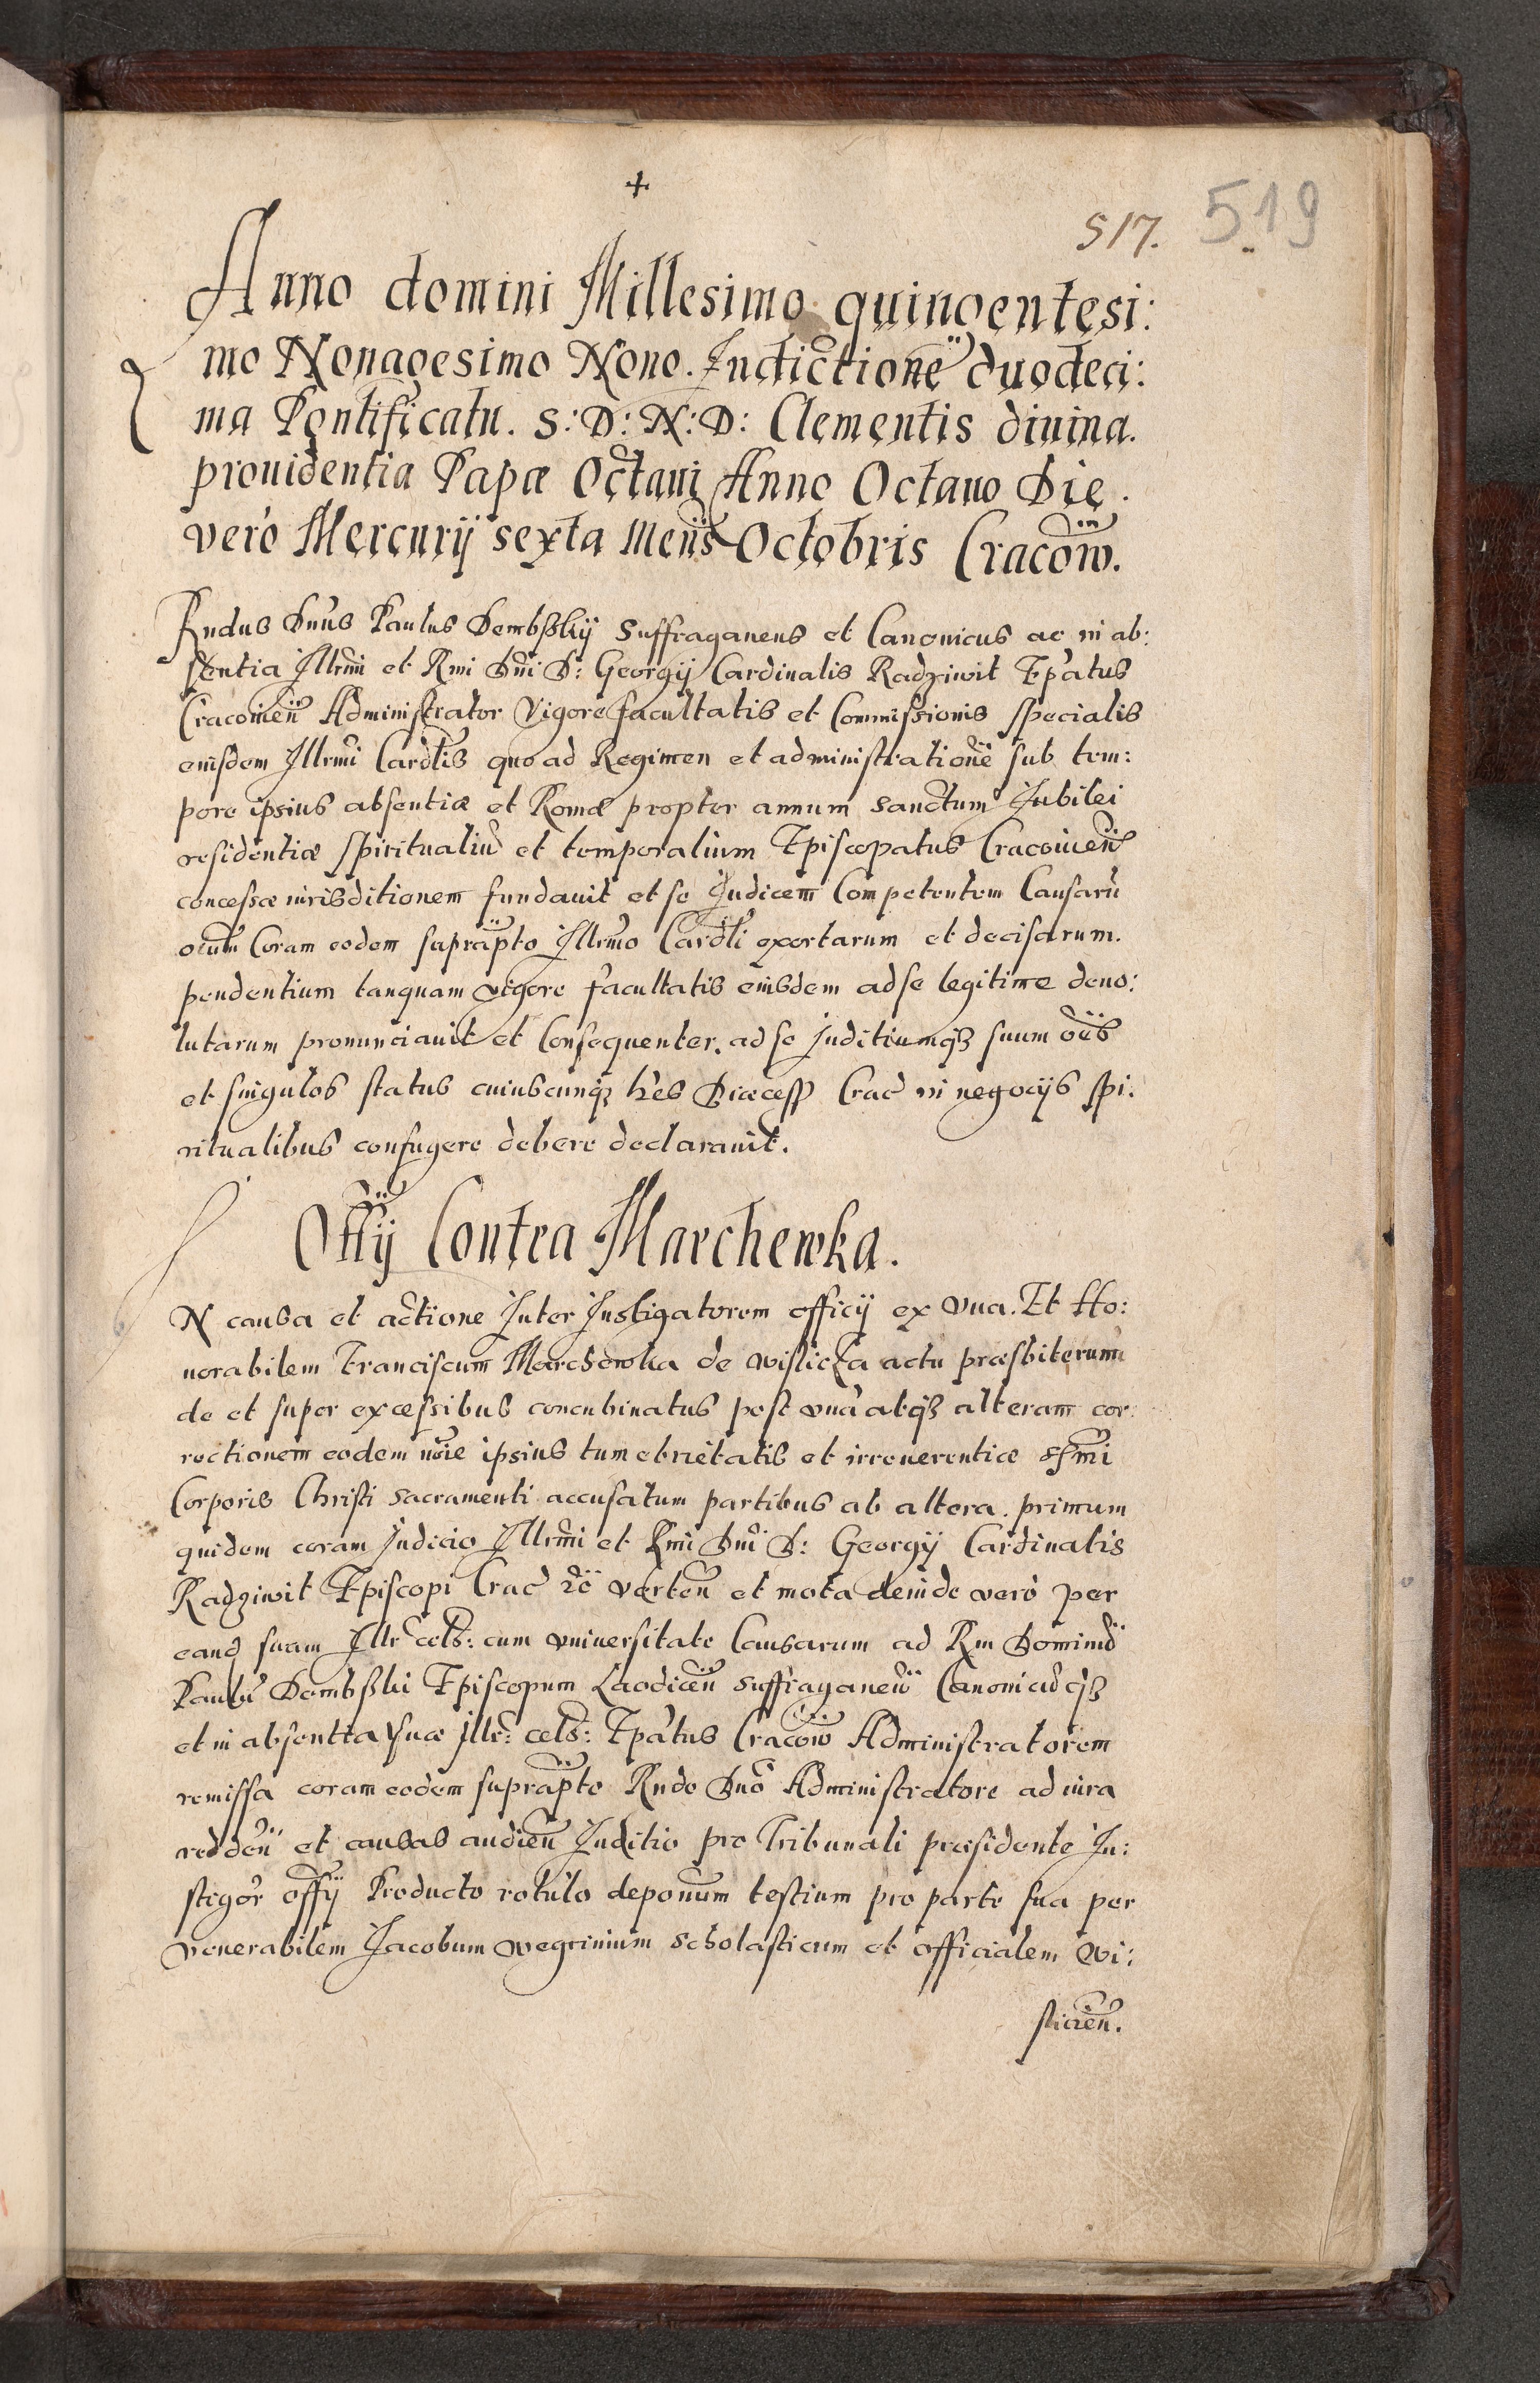 +
517. 519
Anno domini Millesimo quingentesi:
mo Nonagesimo Nono. Indictione duodeci:
ma Pontificatu. S: D: N: D: Clementis diuina.
prouidentia Papæ Octaui Anno Octauo Die.
verò Mercurij sexta Meñs Octobris Cracow.
Rndus Dnus Paulus Dembßkij Suffraganeus et Canonicus ac in ab:
sentia Illrmi et Rmi Dni D: Georgij Cardinalis Radziwit Epatus
Cracouieñ Administrator Vigore facultatis et Commissionis specialis
eiusdem Illrmi Cardlis quo ad Regimen et administrationē sub tem:
pore ipsius absentiæ et Romæ propter annum sanctum Jubilei
residentiæ spiritualiū et temporalium Episcopatus Cracouieñ
concessæ iurisditionem fundauit et se Judicem Competentem Causarū
oium Coram eodem suprapto Illrmo Cardli exortarum et decisarum.
pendentium tanquam vigore facultatis eiusdem ad se legitime deuo:
lutarum pronunciauit et Consequenter. ad se juditiumqꝫ suum oēs
et singulos status cuiuscunqꝫ hēs Diæcess Crac in negocijs spi:
ritualibus confugere debere declarauit.
Offij Contra Marchewka.
N causa et actione Inter Instigatorem officij ex vna. Et Ho:
norabilem Franciscum Marchewka de wislicza actu præsbiterum
de et super excessibus concubinatus post vnā atqꝫ alteram cor:
rectionem eodem noīe ipsius tum ebrietatis et irreuerentiæ ssmi
Corporis Christi sacramenti accusatum partibus ab altera. primum
quidem coram judicio Illrmi et Rmi Dni D: Georgij Cardinalis
Radziwit Episcopi Crac rē verteñ et mota deinde verò per
eand suam Illr cels: cum vniuersitate Causarum ad Rm Dominū
Paulū Dembßki Episcopum Laodiceñ suffraganeū Canonicūqꝫ
et in absentia suæ jllr: cels: Epatus Cracow Administratorem
remissa coram eodem suprapto Rndo Dno Administratore ad iura
reddeñ et causas audieñ Juditio pro Tribunali præsidente In:
stigor offij Producto rotulo deponum testium pro parte sua per
venerabilem Jacobum wegrinium scholasticum et officialem wi:
slicieñ.